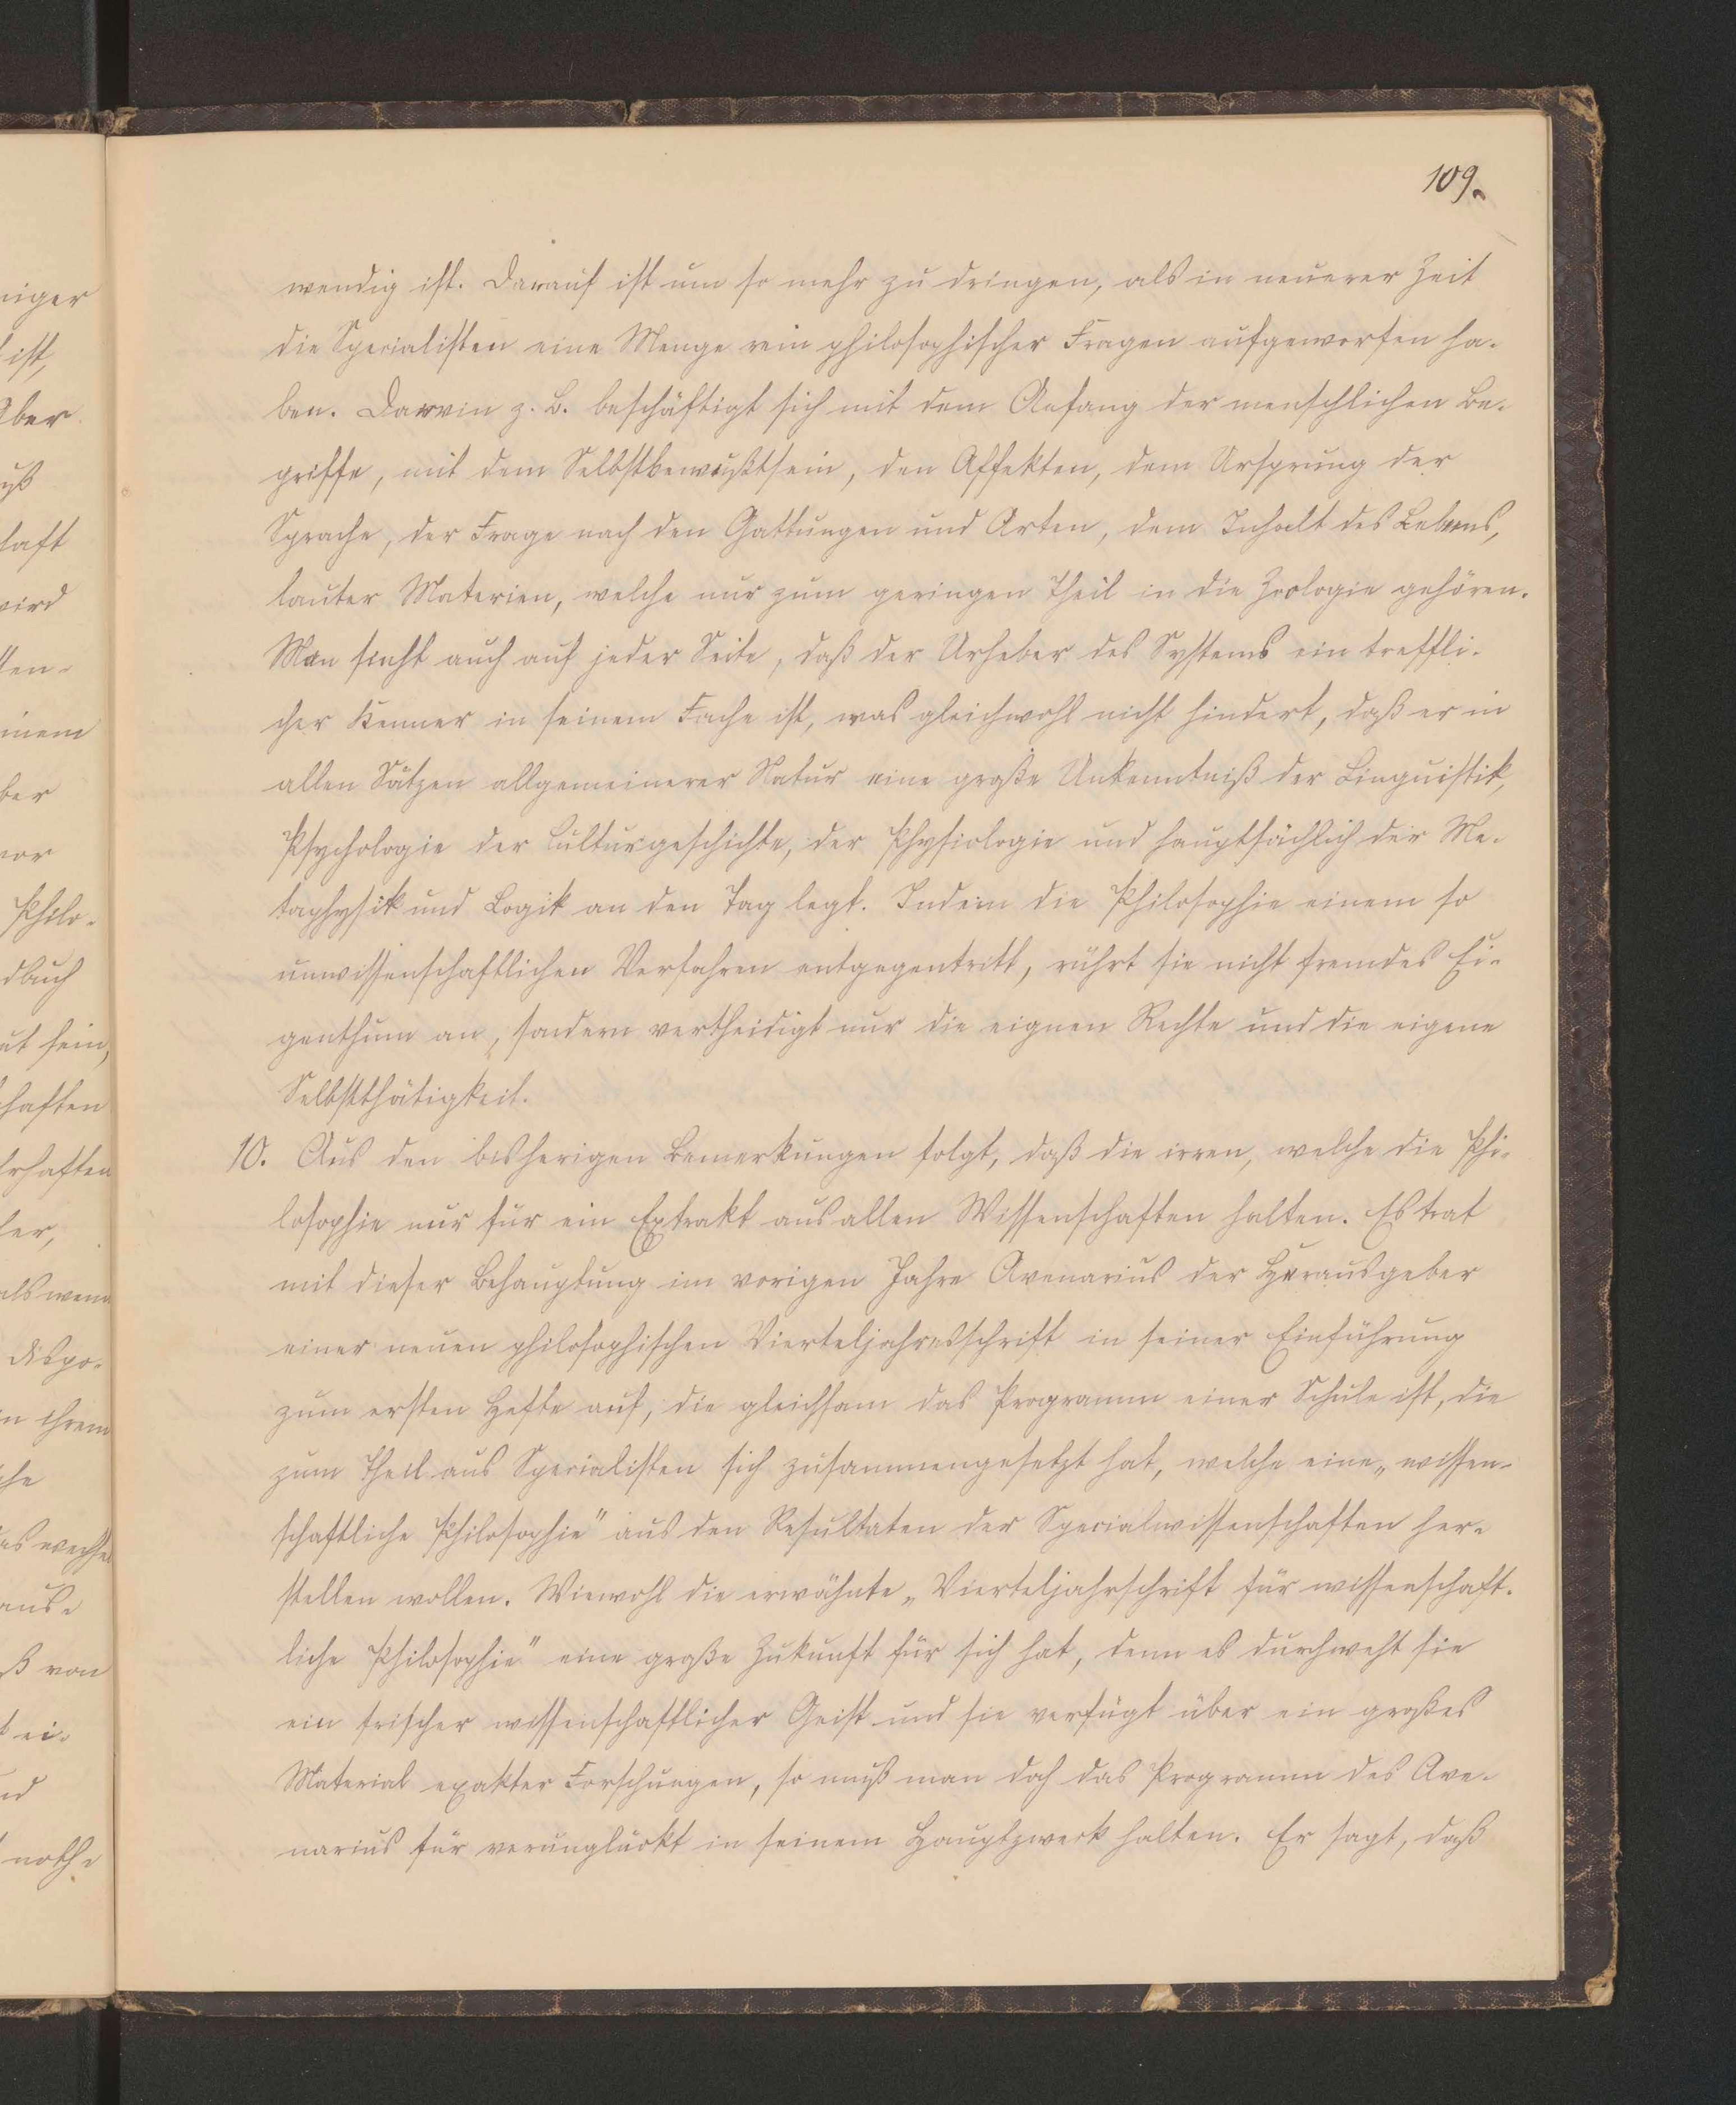 109.
wendig ist. Darauf ist um so mehr zu dringen, als in neuerer Zeit
die Specialisten eine Menge rein philosophischer Fragen aufgeworfen ha-
ben. Darwin z. B. beschäftigt sich mit dem Anfang der menschlichen Be-
griffe, mit dem Selbstbewußtsein, den Affekten, dem Ursprung der
Sprache, der Frage nach den Gattungen und Arten, dem Inhalt des Lebens,
lauter Materien, welche nur zum geringen Theil in die Zoologie gehören.
Man sieht auch auf jeder Seite, daß der Urheber des Systems ein treffli-
cher Kenner in seinem Fache ist, was gleichwohl nicht hindert, daß er in
allen Sätzen allgemeinerer Natur eine große Unkenntniß der Linguistik,
Psychologie der Culturgeschichte, der Physiologie und hauptsächlich der Me-
taphysik und Logik an den Tag legt. Indem die Philosophie einem so
unwissenschaftlichen Verfahren entgegentritt, rührt sie nicht fremdes Ei-
genthum an, sondern vertheidigt nur die eignen Rechte und die eigene
Selbstthätigkeit.
10. Aus den bisherigen Bemerkungen folgt, daß die irren, welche die Phi-
losophie nur für ein Extrakt aus allen Wissenschaften halten. Es trat
mit dieser Behauptung im vorigen Jahre Avenarius der Herausgeber
einer neuen philosophischen Vierteljahresschrift in seiner Einführung
zum ersten Hefte auf, die gleichsam das Programm einer Schule ist, die
zum Theil aus Specialisten sich zusammengesetzt hat, welche eine „wissen-
schaftliche Philosophie" aus den Resultaten der Specialwissenschaften her-
stellen wollen. Wiewohl die erwähnte „Vierteljahrschrift für wissenschaft-
liche Philosophie" eine große Zukunft für sich hat, denn es durchweht sie
ein frischer wissenschaftlicher Geist und sie verfügt über ein großes
Material exakter Forschungen, so muß man doch das Programm des Ave-
narius für verunglückt in seinem Hauptzweck halten. Er sagt, daß